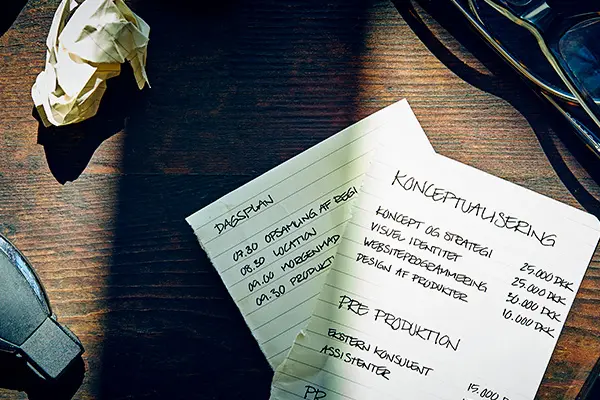 DAGSPLAN
07.30 OPSAMLING AF REGI
08.30 LOCATION
09.00 MORGENMAD
09.30 PRODUKTI
KONCEPTUALISERING
KONCEPT OG STRATEGI 25.000 DKK
VISUEL IDENTITET 25.000 DKK
WEBSITEPROGRAMMERING 30.000 DKK
DESIGN AF PRODUKTER 10.000 DKK
PRE PRODUKTION
EKSTERN KONSULENT 15.000
ASSISTENTER
PR